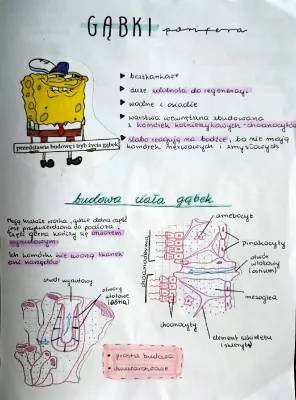 GĄBKI porifera
beztkankowe
duże zdolności do regeneracji
wodne i osiadłe
warstwa wewnętrzna zbudowana
z komórek kołnierzykowych - choanocytów
słabo reagują na bodźce, bo nie mają
komórek nerwowych i zmysłowych
przedstawia budowę i tryb życia gąbek
budowa ciała gąbek
Mają kształt worka, gdzie dolna część
jest przytwierdzona do podłoża,
część górna kończy się otworem
wyrzutowym.
Ich komórki nie tworzą tkanek
ani narządów
otwór wyrzutowy
otwory
wlotowe
(ostia)
amebocyt
pinakocyty
otwór
wlotowy
(ostium)
mezoglea
choanoderma
choanocyty
element szkieletu
(skleryt)
prosta budowa
dwuwarstwowe